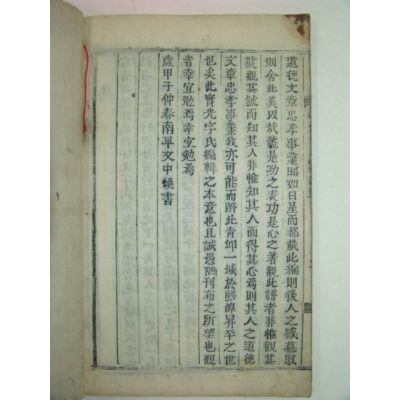 道德文章忠孝事業昭如日星而都載此編則後人之感慕取
則舍此奚以狀號是功之表功是心之著觀此譜者非惟觀其
號觀其號而知其人非惟知其人而得其心焉則其人之道德
文章忠孝事業我亦可能而躋此青邱一域於熙皞昇平之世
也矣此實光宇氏編輯之本意也且誠愚陋刊布之所望也觀
者幸宜勉焉幸宜勉焉
歲甲子仲春南平文中
書